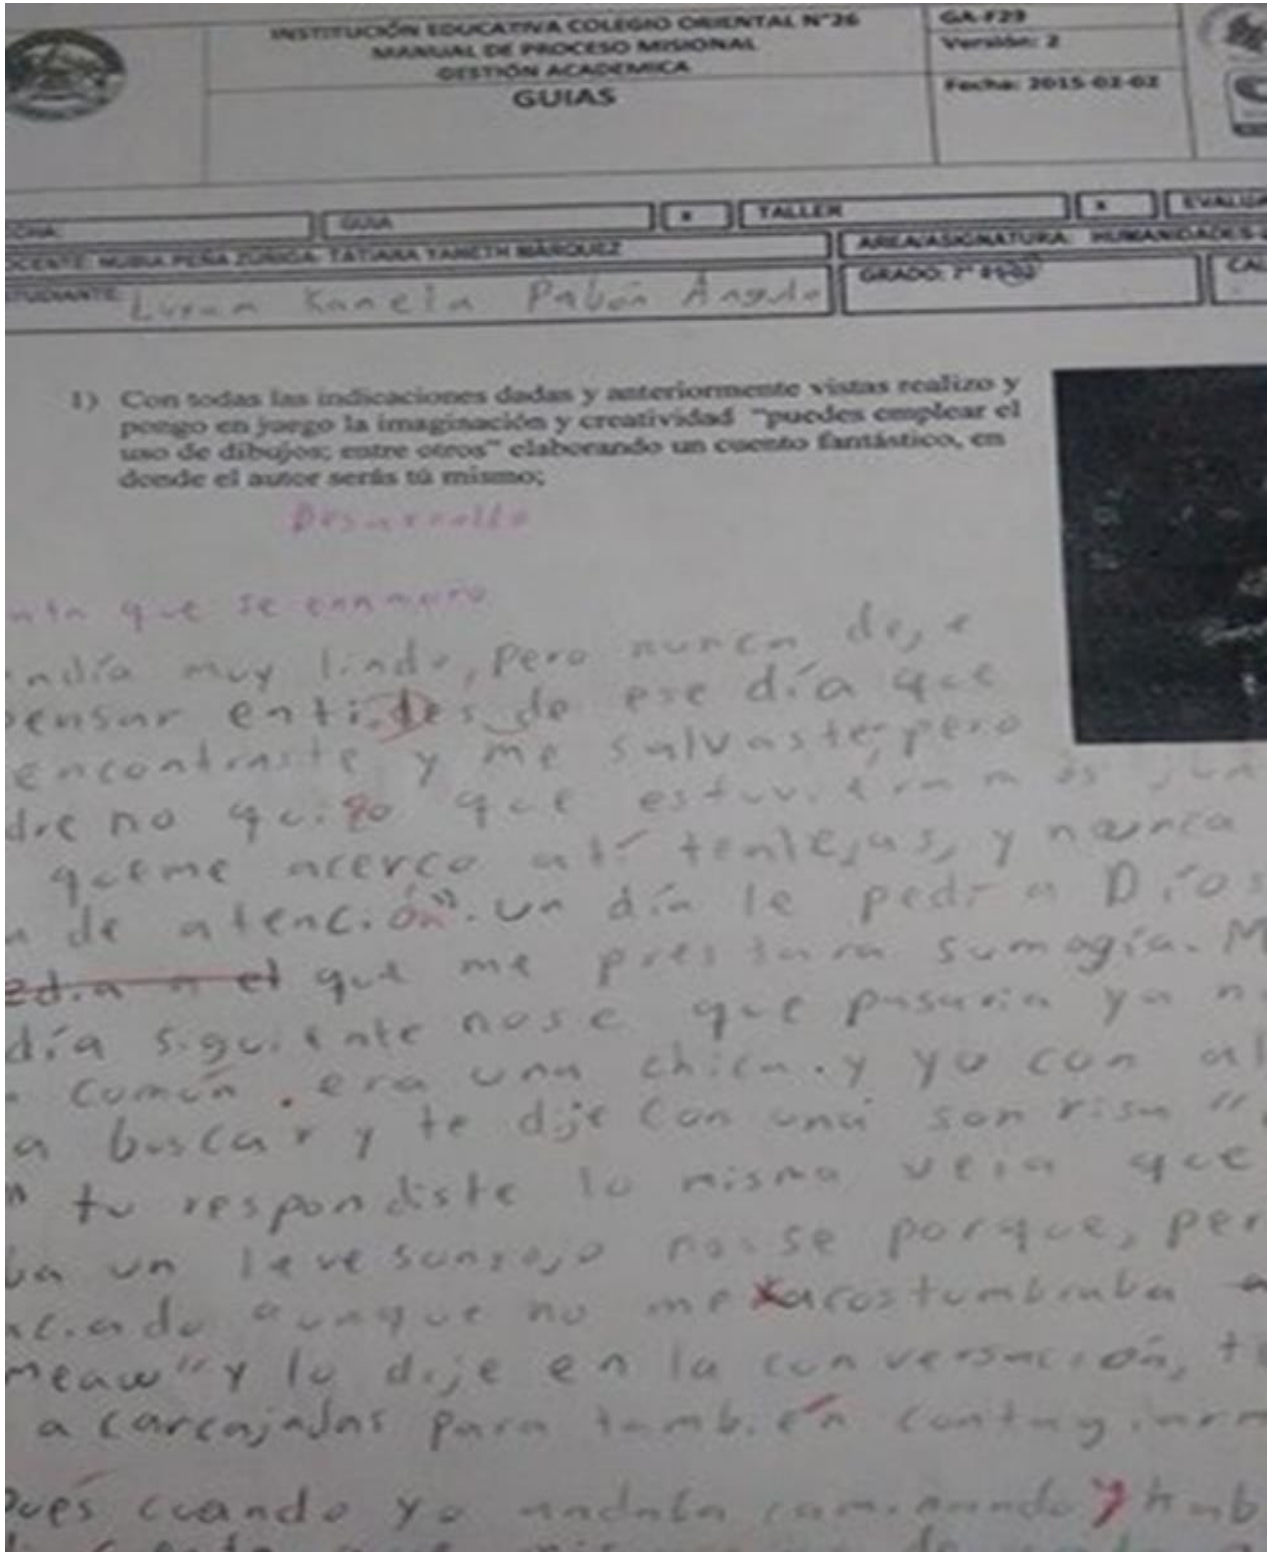 INSTITUCIÓN EDUCATIVA COLEGIO ORIENTAL N°26
MANUAL DE PROCESO MISIONAL
GESTIÓN ACADEMICA
GUIAS
GA-F29
Versión: 2
Fecha: 2015-02-02
CHA: GUIA x TALLER x EVALUA
OCENTE: NUBIA PEÑA ZUÑIGA- TATIANA YANETH MÁRQUEZ AREA/ASIGNATURA: HUMANIDADES-
TUDIANTE: Kanela Pabón Angulo GRADO: 7° CAL
1) Con todas las indicaciones dadas y anteriormente vistas realizo y
pongo en juego la imaginación y creatividad "puedes emplear el
uso de dibujos; entre otros" elaborando un cuento fantástico, en
donde el autor serás tú mismo;
Desarrollo
que se enamoro
ndía muy lindo, pero nunca deje
ensar enti, des de ese día que
encontraste y me salvaste, pero
dre no quizo que estuvieramos jun
queme acerco atí tealejas, y nunca
de atención". un día le pedí a Díos
edia a el que me prestara sumagía. M
día siguiente nose que pasaria ya n
común. era una chica. y yo con al
a buscar y te dije con una sonrisa "
" tu respondiste lo mismo veia que
ba un leve sonrojo no se porque, per
aunque no me acostumbraba a
meaw" y lo dije en la conversación, t
a carcajadas para también contagiarm
pués cuando yo andaba caminando y hab